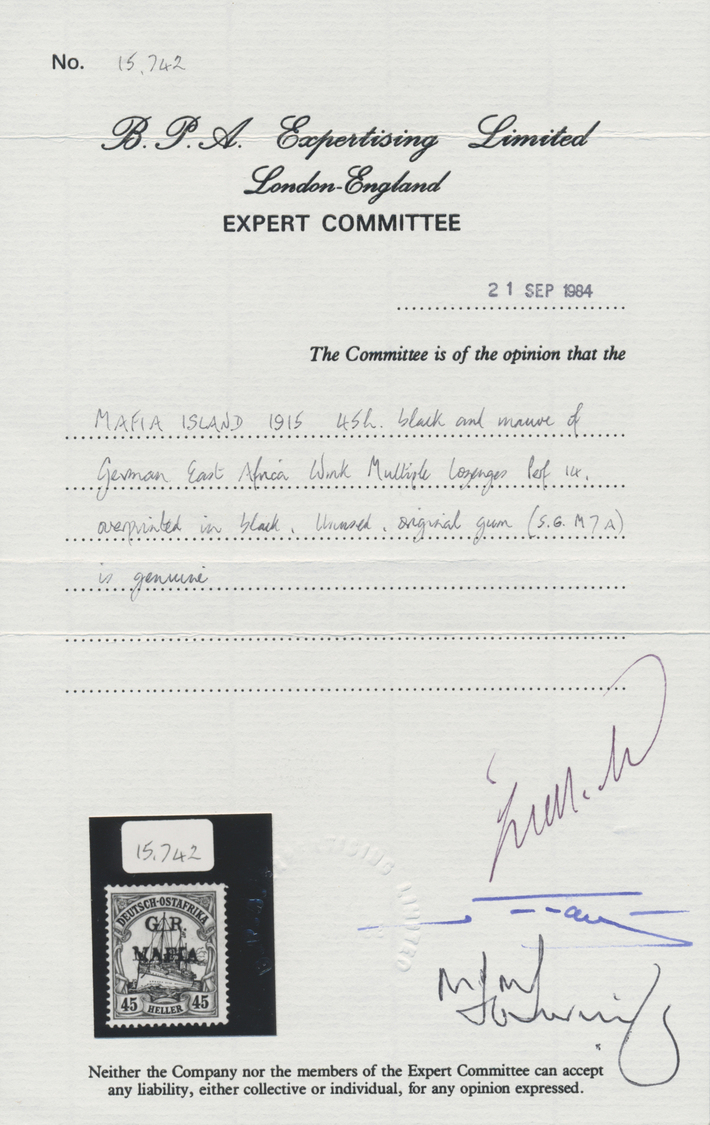 No. 15,742
B. P. A. Expertising Limited
London-England
EXPERT COMMITTEE
21 SEP 1984
The Committee is of the opinion that the
MAFIA ISLAND 1915 45h. black and mauve of
German East Africa Wmk Multiple Lozenges Perf 14,
overprinted in black, Unused, original gum (S.G. M7A)
is genuine
15,742
DEUTSCH-OSTAFRIKA
G.R.
MAFIA
45 HELLER 45
LIMITED
Neither the Company nor the members of the Expert Committee can accept
any liability, either collective or individual, for any opinion expressed.